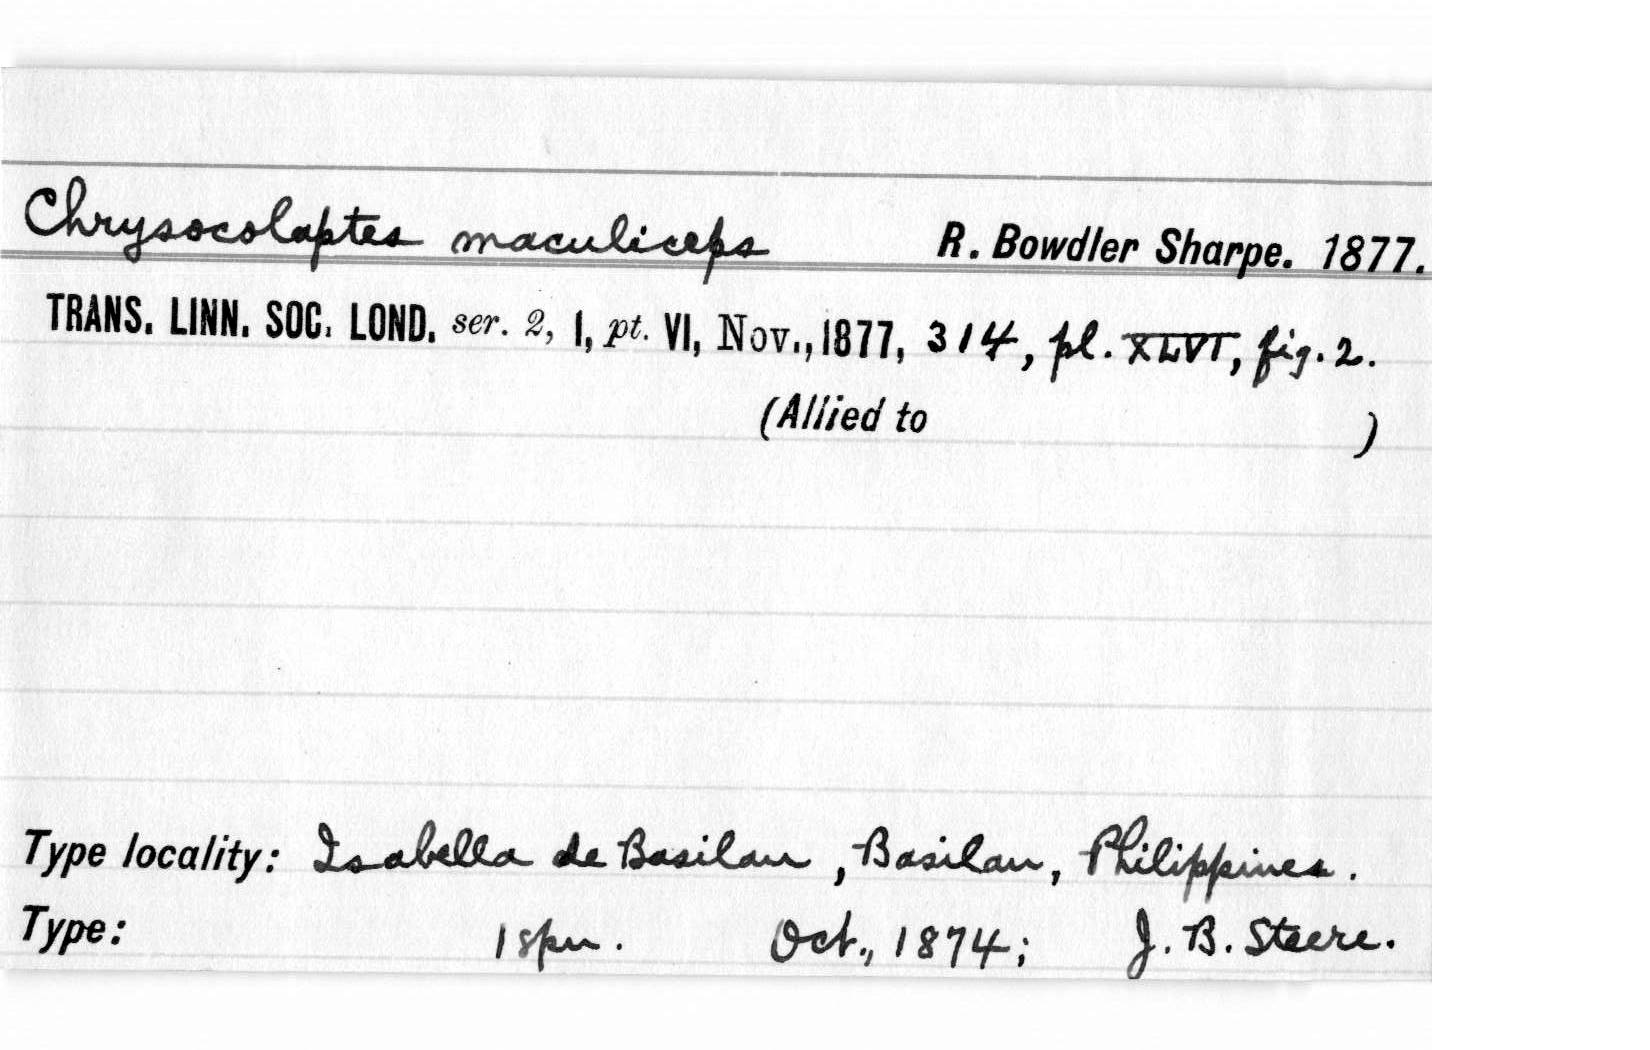 Chrysocolaptes maculiceps R. Bowdler Sharpe. 1877.
TRANS. LINN. SOC. LOND. ser. 2, I, pt. VI, Nov., 1877, 314, pl. XLVI, fig. 2.
(Allied to )
Type locality: Isabella de Basilan, Basilan, Philippines.
Type: 1 spm. Oct., 1874; J. B. Steere.